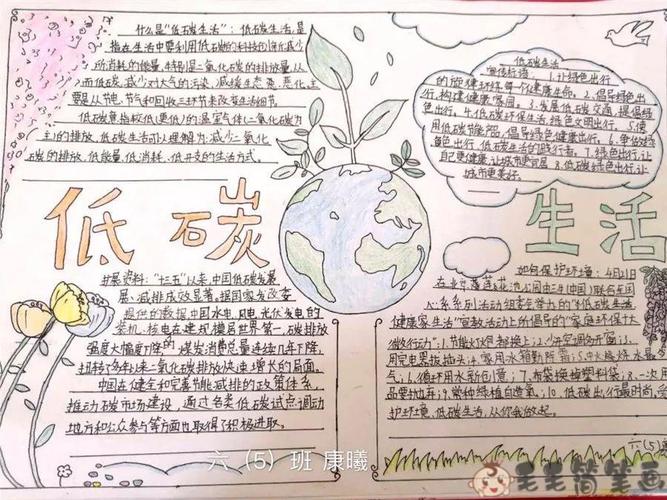 什么是"低碳生活"：低碳生活是
指在生活中要利用低碳的科技创作低减少
所消耗的能量，特别是二氧化碳的排放量从
而低碳，减少对大气的污染，减缓生态恶化主
要是从节电、节气和回收三环节来改变生活细节
低碳意指较低(更低)的温室气体(二氧化碳为
主)的排放，低碳生活可以理解为：减少二氧化
碳的排放，低能量、低消耗、低开支的生活方式。
低碳生活
宣传标语：1.让绿色出行
的旋律环绕每个健康生命。2.倡导绿色出
行，构建健康家园。3.发展低碳交通，提倡绿
色出行。4.低碳环保生活，绿色文明出行。5.使
用低碳节能 倡导绿色健康出行。6.争做
绿色出行，低碳生活的践行者。7.绿色出行，让
自己更健康，让城市更宜居 8.低碳绿色出行，让
城市更美好。
低碳
生活
扩展资料："十三五"以来，中国低碳发展
展、减排成效显著，据国家发改委
提供的数据，中国水电、风电、光伏发电的
装机、核电在建规模居世界第一，碳排放
强度大幅度下降，煤炭消费总量连续几年下降，
扭转了多年来二氧化碳快速增长的局面。
中国在健全和完善节能减排的政策体系，
推动碳市场建设，通过各类低碳试点调动
地方和公众参与等方面也取得了积极进取。
如何保护环境：4月21日
在北京莲花池公园由三中国)联合国
系列活动组委会举办的"低碳生活
健康家生活"宣教活动上所倡导的"家庭环保十
微行动"：1.节能灯火都换上；2.外开空调勿开窗；3.
用完电器拔插头；4.家用水箱勤所需；5.
气；6.循环用水新创意；7.布袋换掉塑料袋；8.一次用
品要抗拒；9.常种绿植自造氧；10.低碳出行最时尚，
护环境、低碳生活，从你我做起。
六（5）班
六（5）班 康曦
毛毛简笔画